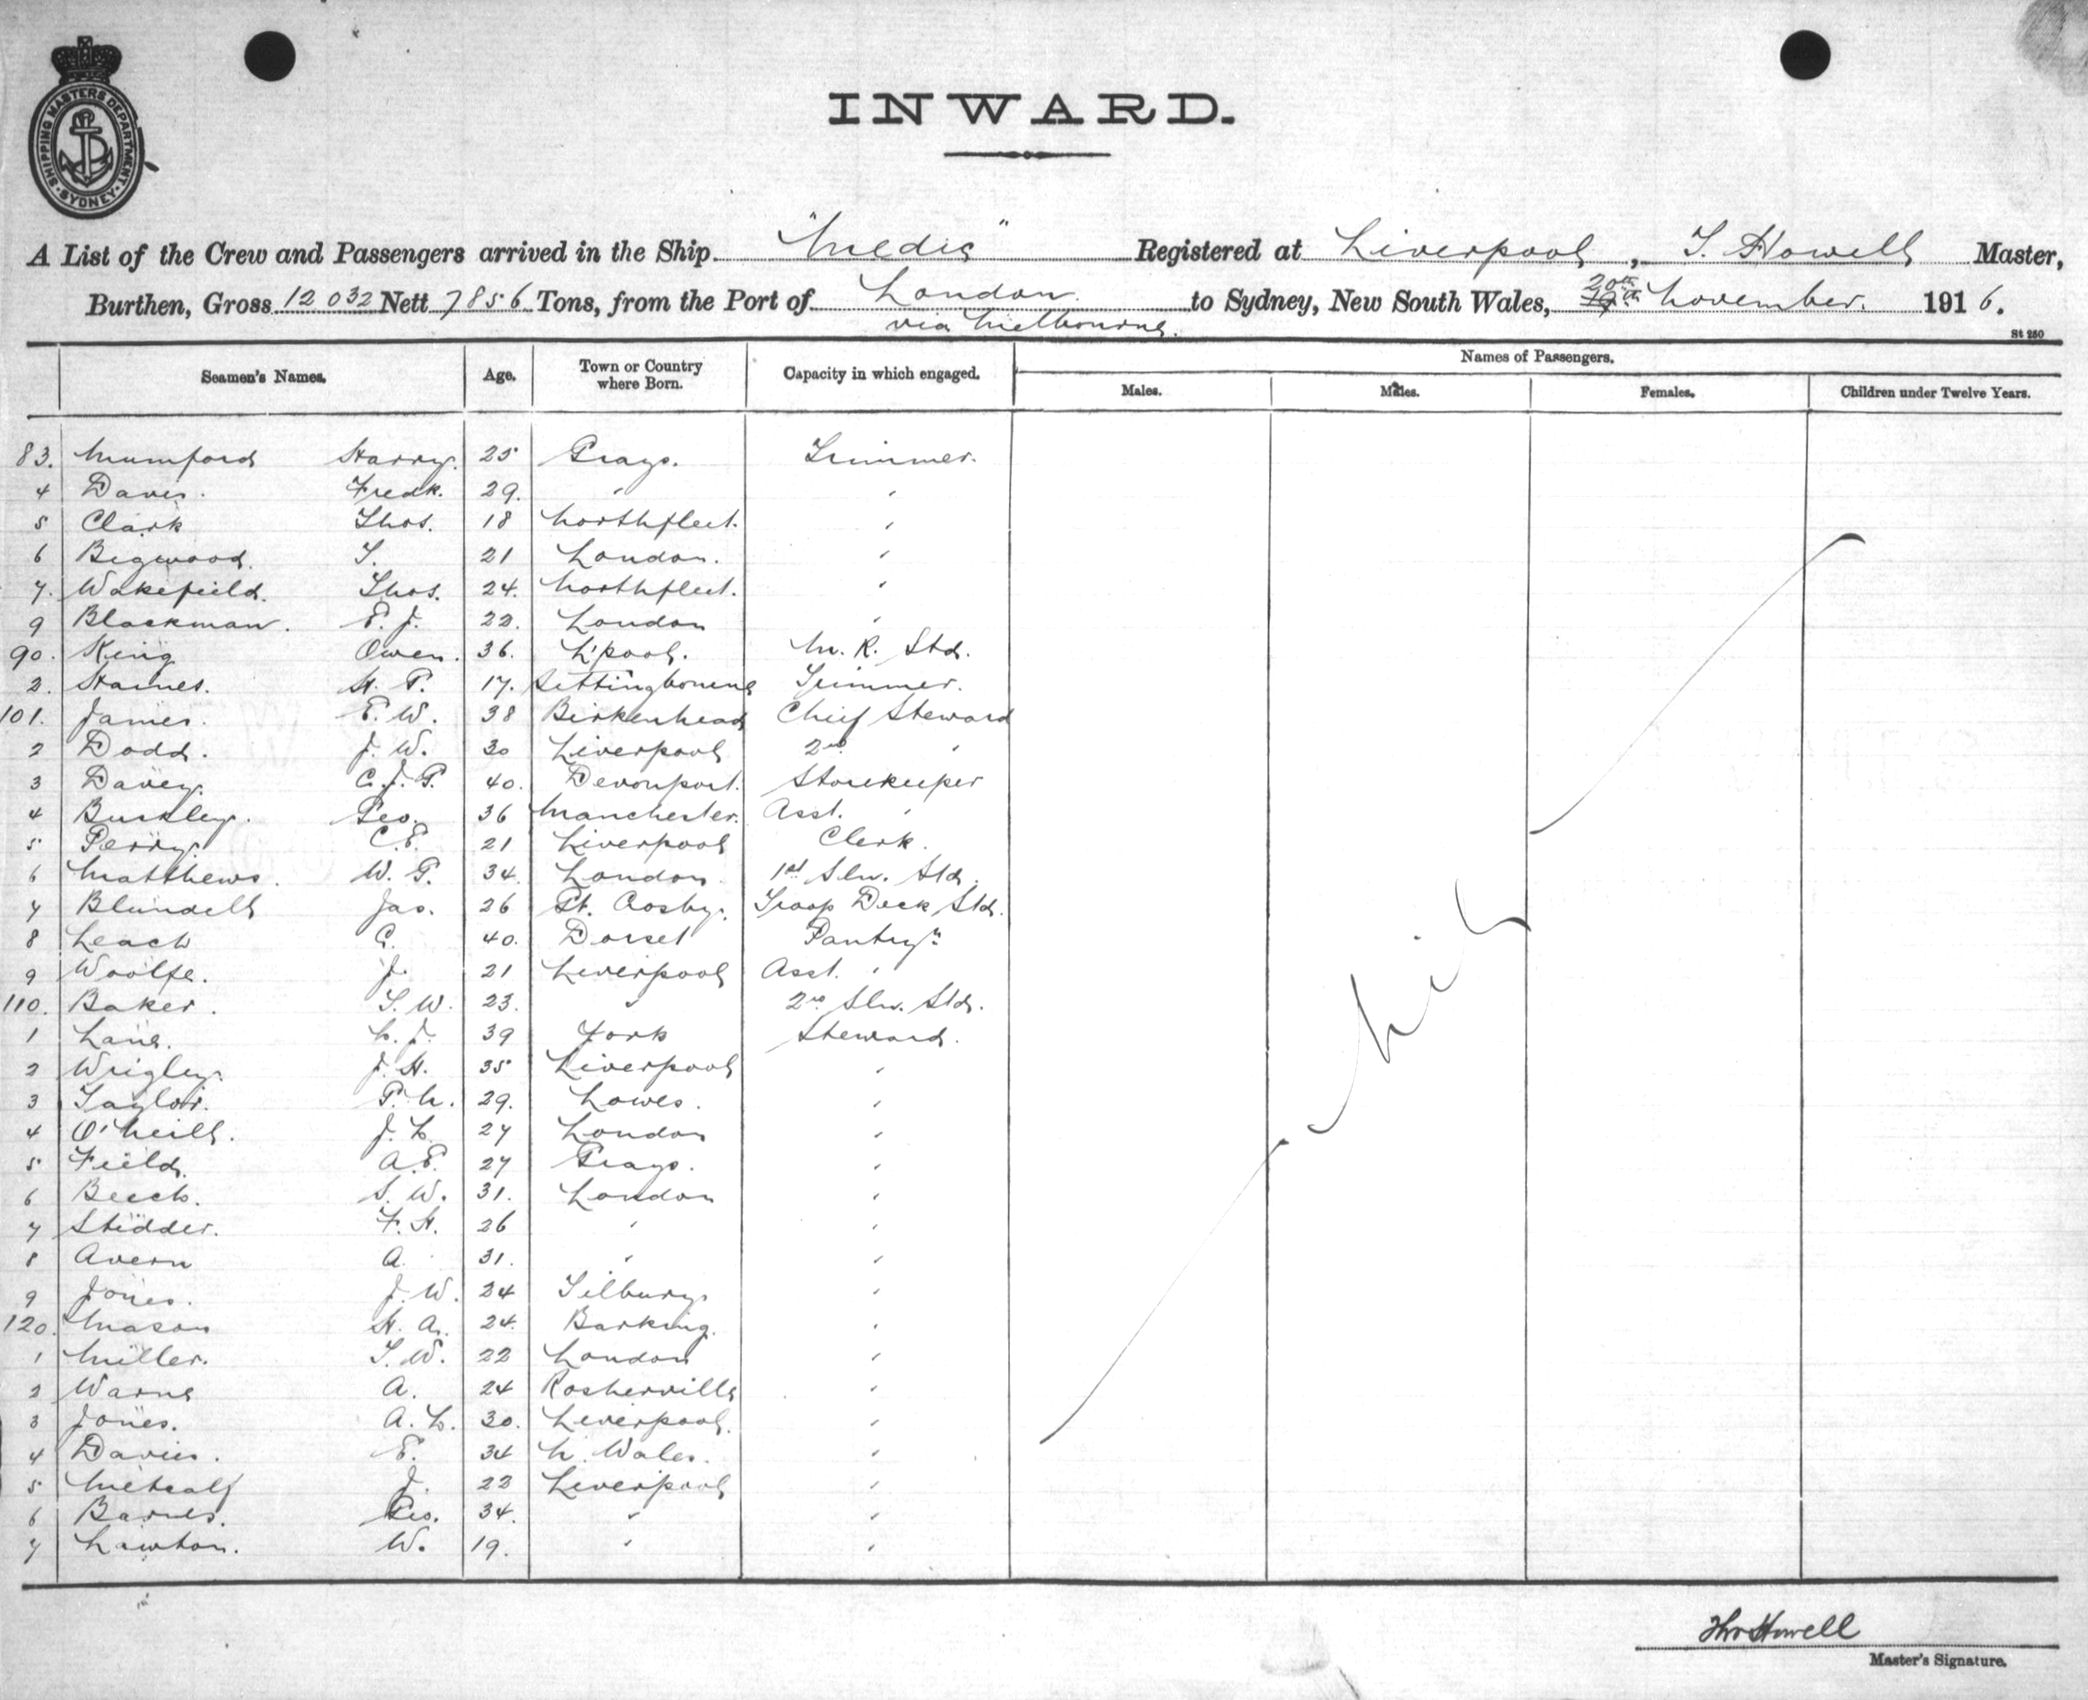 SHIPPING MASTERS DEPARTMENT. SYDNEY
INWARD.
A List of the Crew and Passengers arrived in the Ship "Medic" Registered at Liverpool, T. Howell Master,
Burthen, Gross 12032 Nett 7856 Tons, from the Port of London to Sydney, New South Wales, 20th November. 1916.
via Melbourne.
St 250
Seamen's Names. Age. Town or Country where Born. Capacity in which engaged. Names of Passengers.
Males. Males. Females. Children under Twelve Years.
83. Mumford Harry. 25 Grays. Trimmer.
4 Daves. Fredk. 29. " "
5 Clark Thos. 18 Northfleet. "
6 Bigwood. T. 21 London. "
7. Wakefield. Thos. 24. Northfleet. "
9 Blackman. E. J. 22. London "
90. King Owen. 36. L'pool. M. R. Std.
2. Haines. H. P. 17. Sittingbourne Trimmer.
101. James. E. W. 38 Birkenhead Chief Steward
2 Dodd. J. W. 30 Liverpool 2nd "
3 Davey. C. J. G. 40. Devonport. Storekeeper
4 Buckley. Geo. 36 Manchester. Asst. "
5 Perry. C. E. 21 Liverpool Clerk.
6 Matthews. W. G. 34. London 1st Sln. Std.
7 Blundell Jas. 26 Gt. Crosby. Troop Deck Std.
8 Leach C. 40. Dorset Pantryn
9 Woolfe. J. 21 Liverpool Asst. "
110. Baker. T. W. 23. " 2nd Sln. Std.
1 Lane. L. J. 39 York Steward.
2 Wrigley. J. H. 35 Liverpool "
3 Taylor. P. N. 29. Lowes. "
4 O'Neill. J. L. 27 London "
5 Field. A. E. 27 Grays. "
6 Beech. S. W. 31. London "
7 Stidder. F. H. 26 " "
8 Avern A. 31. " "
9 Jones. J. W. 24 Tilbury "
120. Mason H. A. 24. Barking. "
1 Miller. T. W. 22 London "
2 Warne A. 24 Rosherville "
3 Jones. A. L. 30. Liverpool. "
4 Davies. E. 34 N. Wales. "
5 Metcalf J. 22 Liverpool "
6 Barnes. Geo. 34. " "
7 Lawton. W. 19. " "
Nil
Thos Howell
Master's Signature.